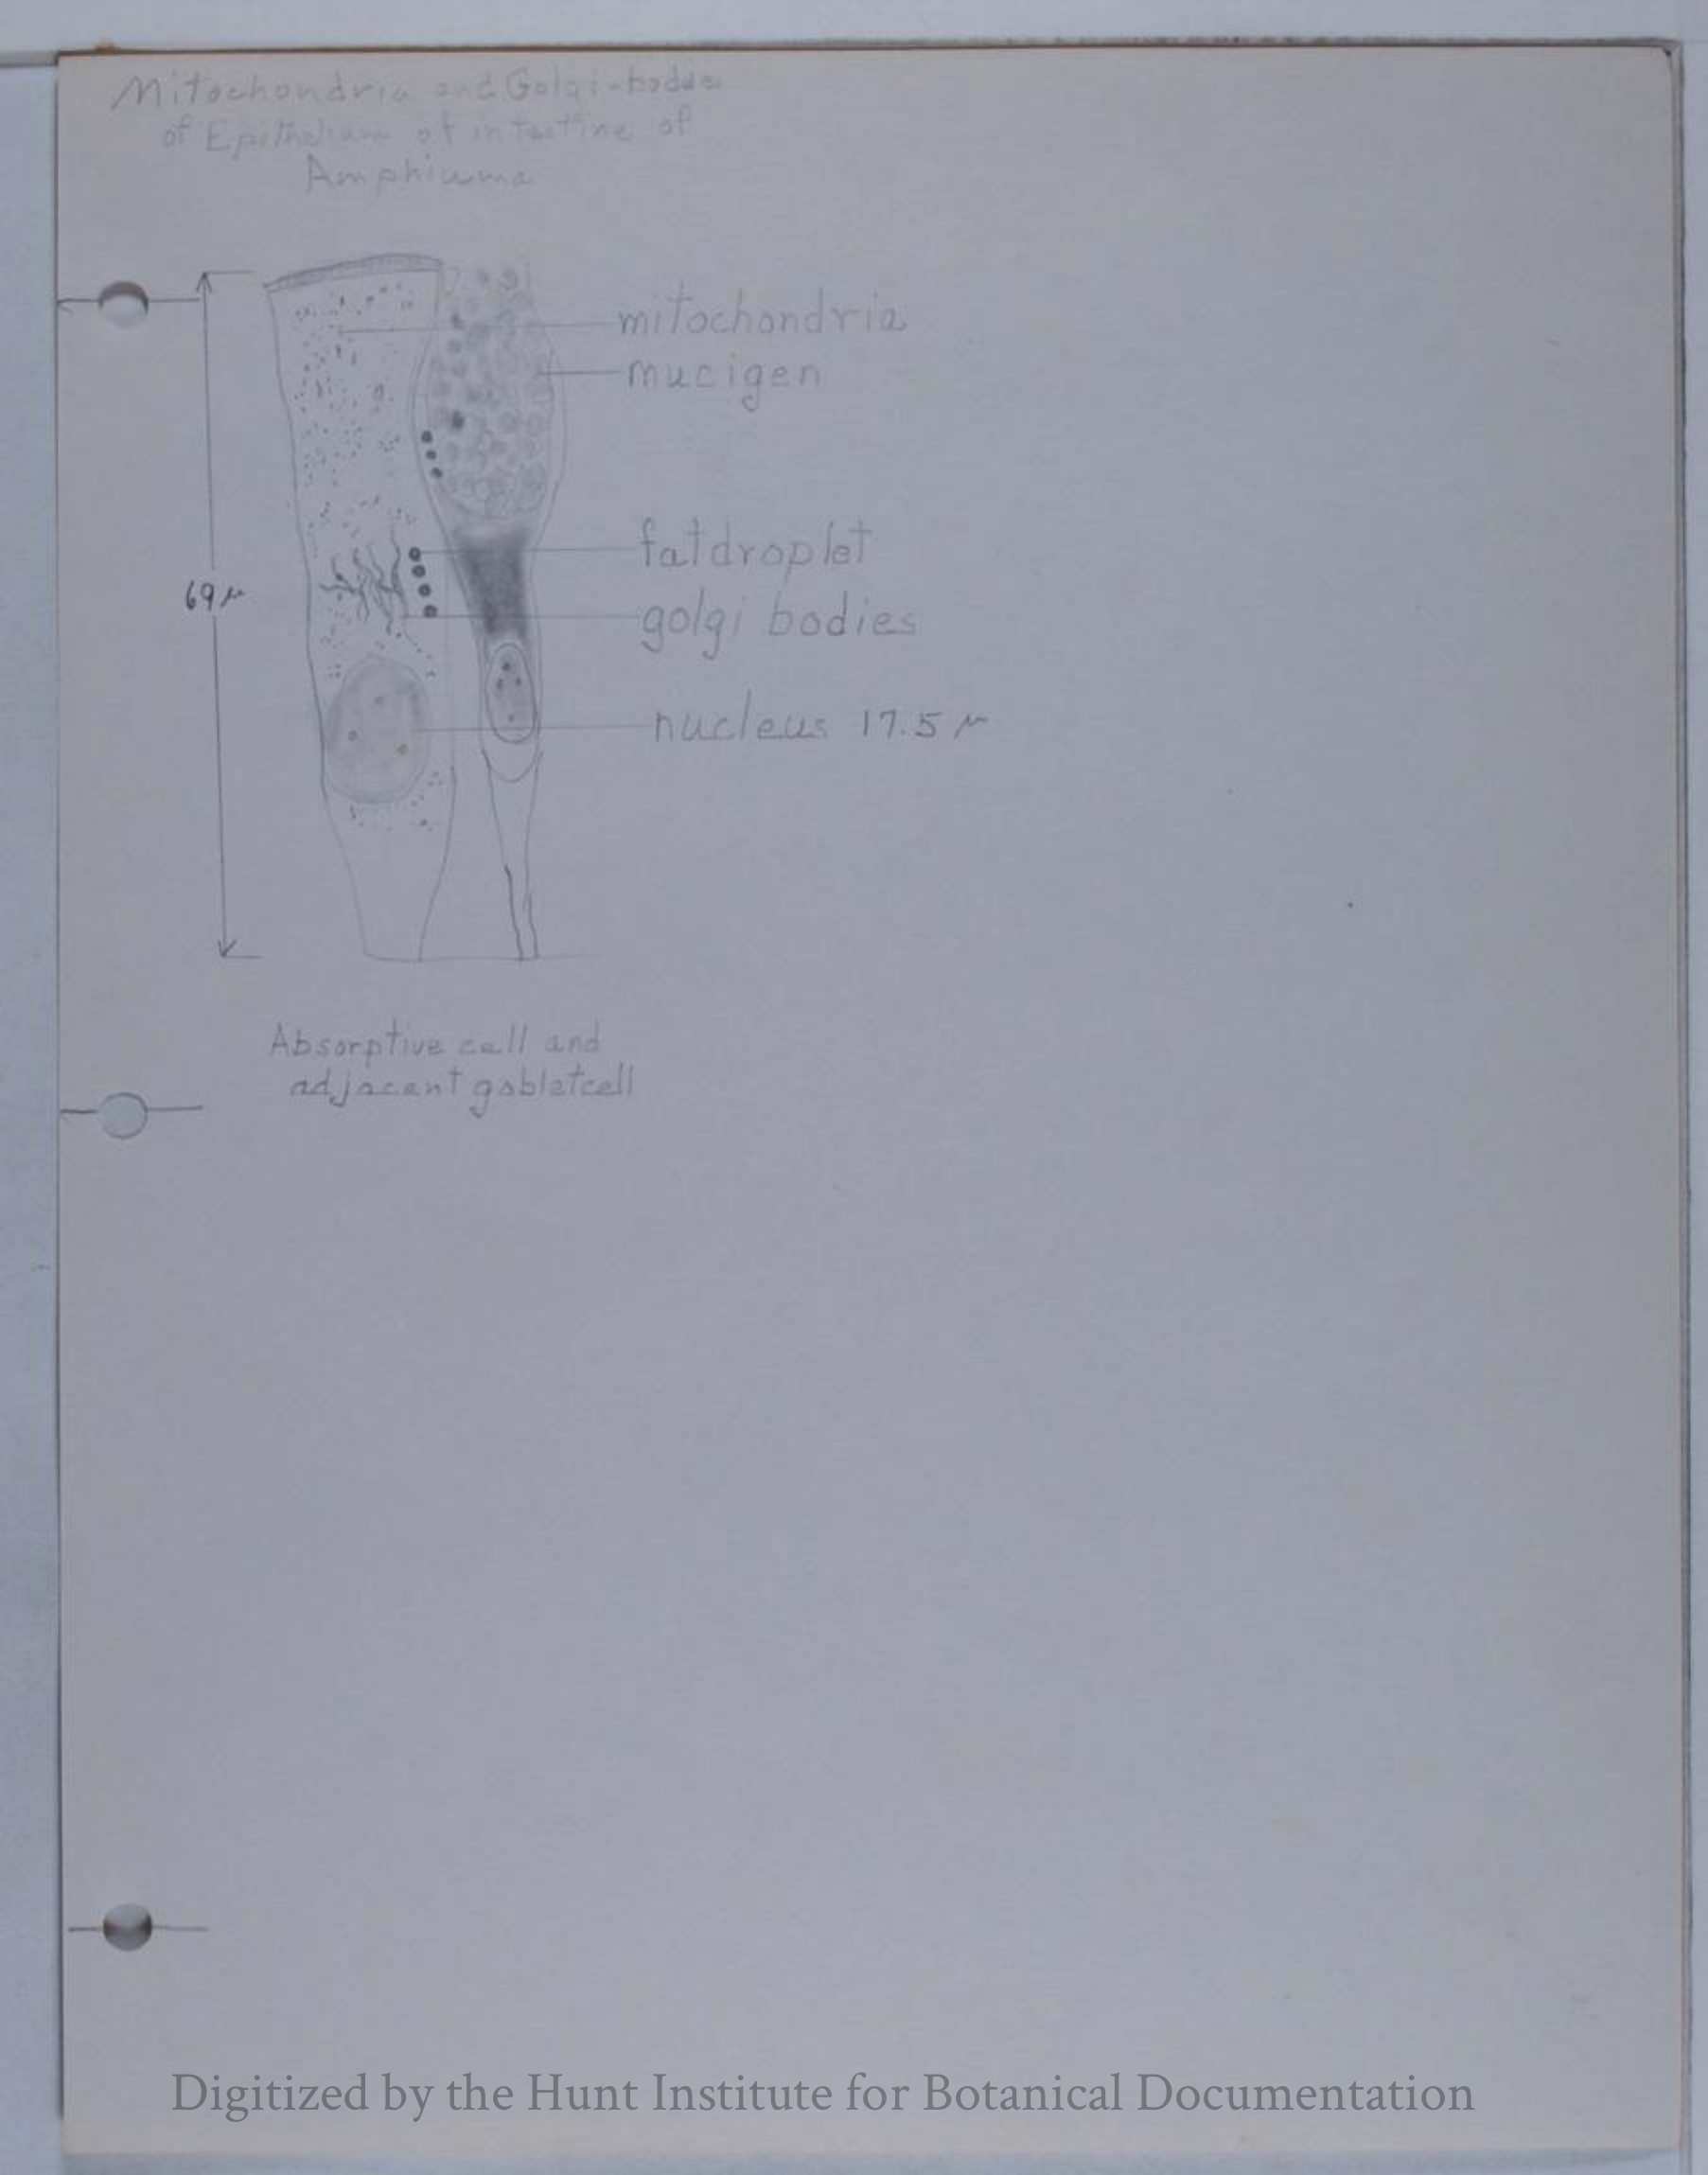 Mitochondria and Golgi-bodies
of Epithelium of intestine of
Amphiuma
mitochondria
mucigen
fatdroplet
69 μ
golgi bodies
nucleus 17.5 μ
Absorptive cell and
adjacent gobletcell
Digitized by the Hunt Institute for Botanical Documentation